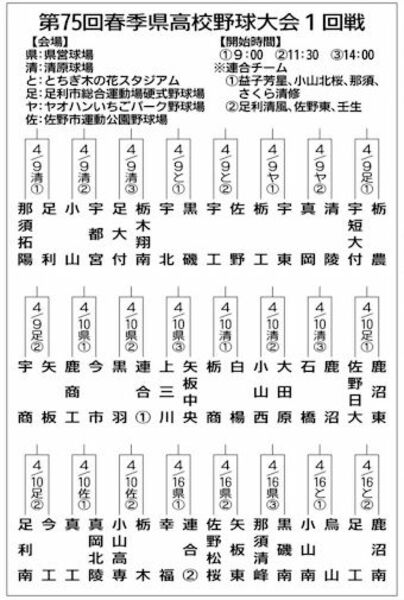 第75回春季県高校野球大会1回戦
【会場】
県:県営球場
清:清原球場
と:とちぎ木の花スタジアム
足:足利市総合運動場硬式野球場
ヤ:ヤオハンいちごパーク野球場
佐:佐野市運動公園野球場
【開始時間】
①9:00 ②11:30 ③14:00
※連合チーム
①益子芳星、小山北桜、那須、
さくら清修
②足利清風、佐野東、壬生
4/9清①
4/9清②
4/9清③
4/9と①
4/9と②
4/9ヤ①
4/9ヤ②
4/9足①
那須拓陽
足利
小山
宇都宮
足大付
栃木翔南
宇北
黒磯工
宇工
佐野
栃工
宇東
真岡
清陵
宇短大付
栃農
4/9足②
4/10県①
4/10県②
4/10県③
4/10清①
4/10清②
4/10清③
4/10足①
宇商
矢板
鹿商工
今市
黒羽
連合①
上三川
矢板中央
栃商
白楊
小山西
大田原
石橋
鹿沼
佐野日大
鹿沼東
4/10足②
4/10佐①
4/10佐②
4/16県①
4/16県②
4/16県③
4/16と①
4/16と②
足利南
今工
真工
真岡北陵
小山高専
栃木
幸福
連合②
佐野松桜
矢板東
那須清峰
黒磯南
小山南
烏山
足工
鹿沼南